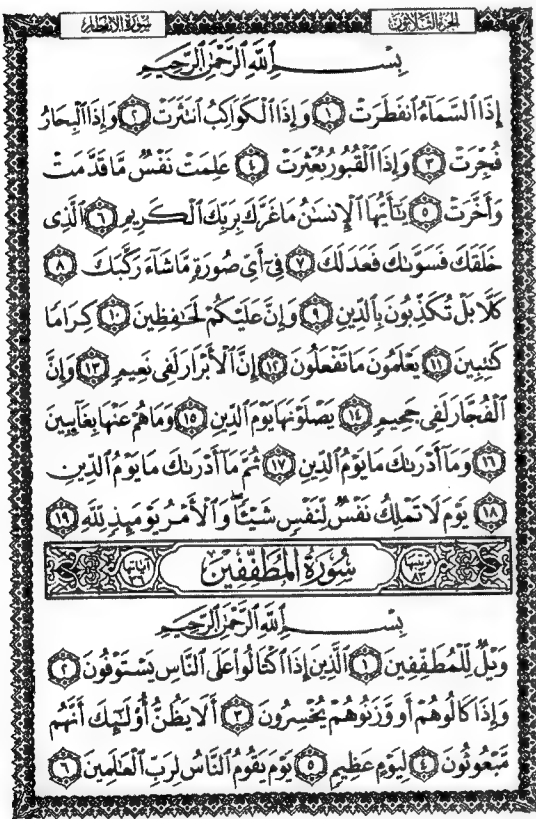 سورة الانفطار الجزء الثلاثون
بِسْمِ ٱللَّهِ ٱلرَّحْمَٰنِ ٱلرَّحِيمِ
إِذَا ٱلسَّمَآءُ ٱنفَطَرَتْ ١ وَإِذَا ٱلْكَوَاكِبُ ٱنتَثَرَتْ ٢ وَإِذَا ٱلْبِحَارُ
فُجِّرَتْ ٣ وَإِذَا ٱلْقُبُورُ بُعْثِرَتْ ٤ عَلِمَتْ نَفْسٌ مَّا قَدَّمَتْ
وَأَخَّرَتْ ٥ يَٰٓأَيُّهَا ٱلْإِنسَٰنُ مَا غَرَّكَ بِرَبِّكَ ٱلْكَرِيمِ ٦ ٱلَّذِى
خَلَقَكَ فَسَوَّىٰكَ فَعَدَلَكَ ٧ فِىٓ أَىِّ صُورَةٍ مَّا شَآءَ رَكَّبَكَ ٨
كَلَّا بَلْ تُكَذِّبُونَ بِٱلدِّينِ ٩ وَإِنَّ عَلَيْكُمْ لَحَٰفِظِينَ ١٠ كِرَامًا
كَٰتِبِينَ ١١ يَعْلَمُونَ مَا تَفْعَلُونَ ١٢ إِنَّ ٱلْأَبْرَارَ لَفِى نَعِيمٍ ١٣ وَإِنَّ
ٱلْفُجَّارَ لَفِى جَحِيمٍ ١٤ يَصْلَوْنَهَا يَوْمَ ٱلدِّينِ ١٥ وَمَا هُمْ عَنْهَا بِغَآئِبِينَ
١٦ وَمَآ أَدْرَىٰكَ مَا يَوْمُ ٱلدِّينِ ١٧ ثُمَّ مَآ أَدْرَىٰكَ مَا يَوْمُ ٱلدِّينِ
١٨ يَوْمَ لَا تَمْلِكُ نَفْسٌ لِّنَفْسٍ شَيْـًٔا ۖ وَٱلْأَمْرُ يَوْمَئِذٍ لِّلَّهِ ١٩
ترتيبها ٨٣ سُورَةُ المُطَفِّفِينَ آياتها ٣٦
بِسْمِ ٱللَّهِ ٱلرَّحْمَٰنِ ٱلرَّحِيمِ
وَيْلٌ لِّلْمُطَفِّفِينَ ١ ٱلَّذِينَ إِذَا ٱكْتَالُوا۟ عَلَى ٱلنَّاسِ يَسْتَوْفُونَ ٢
وَإِذَا كَالُوهُمْ أَو وَّزَنُوهُمْ يُخْسِرُونَ ٣ أَلَا يَظُنُّ أُو۟لَٰٓئِكَ أَنَّهُم
مَّبْعُوثُونَ ٤ لِيَوْمٍ عَظِيمٍ ٥ يَوْمَ يَقُومُ ٱلنَّاسُ لِرَبِّ ٱلْعَٰلَمِينَ ٦